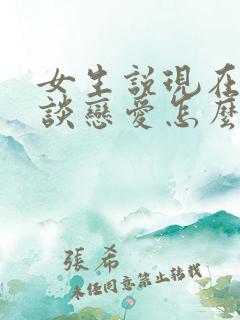 女生說現在
談戀愛怎麼
張希
未經同意禁止轉載